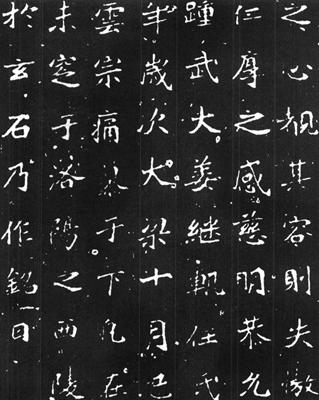 之心覩其容則失激
仁厚之感慈明恭允
踵武大姜継軌任氏
年歲次大梁十月己
雲宗痛慕于下凡在
未窆于洛陽之西陵
於玄石乃作銘曰